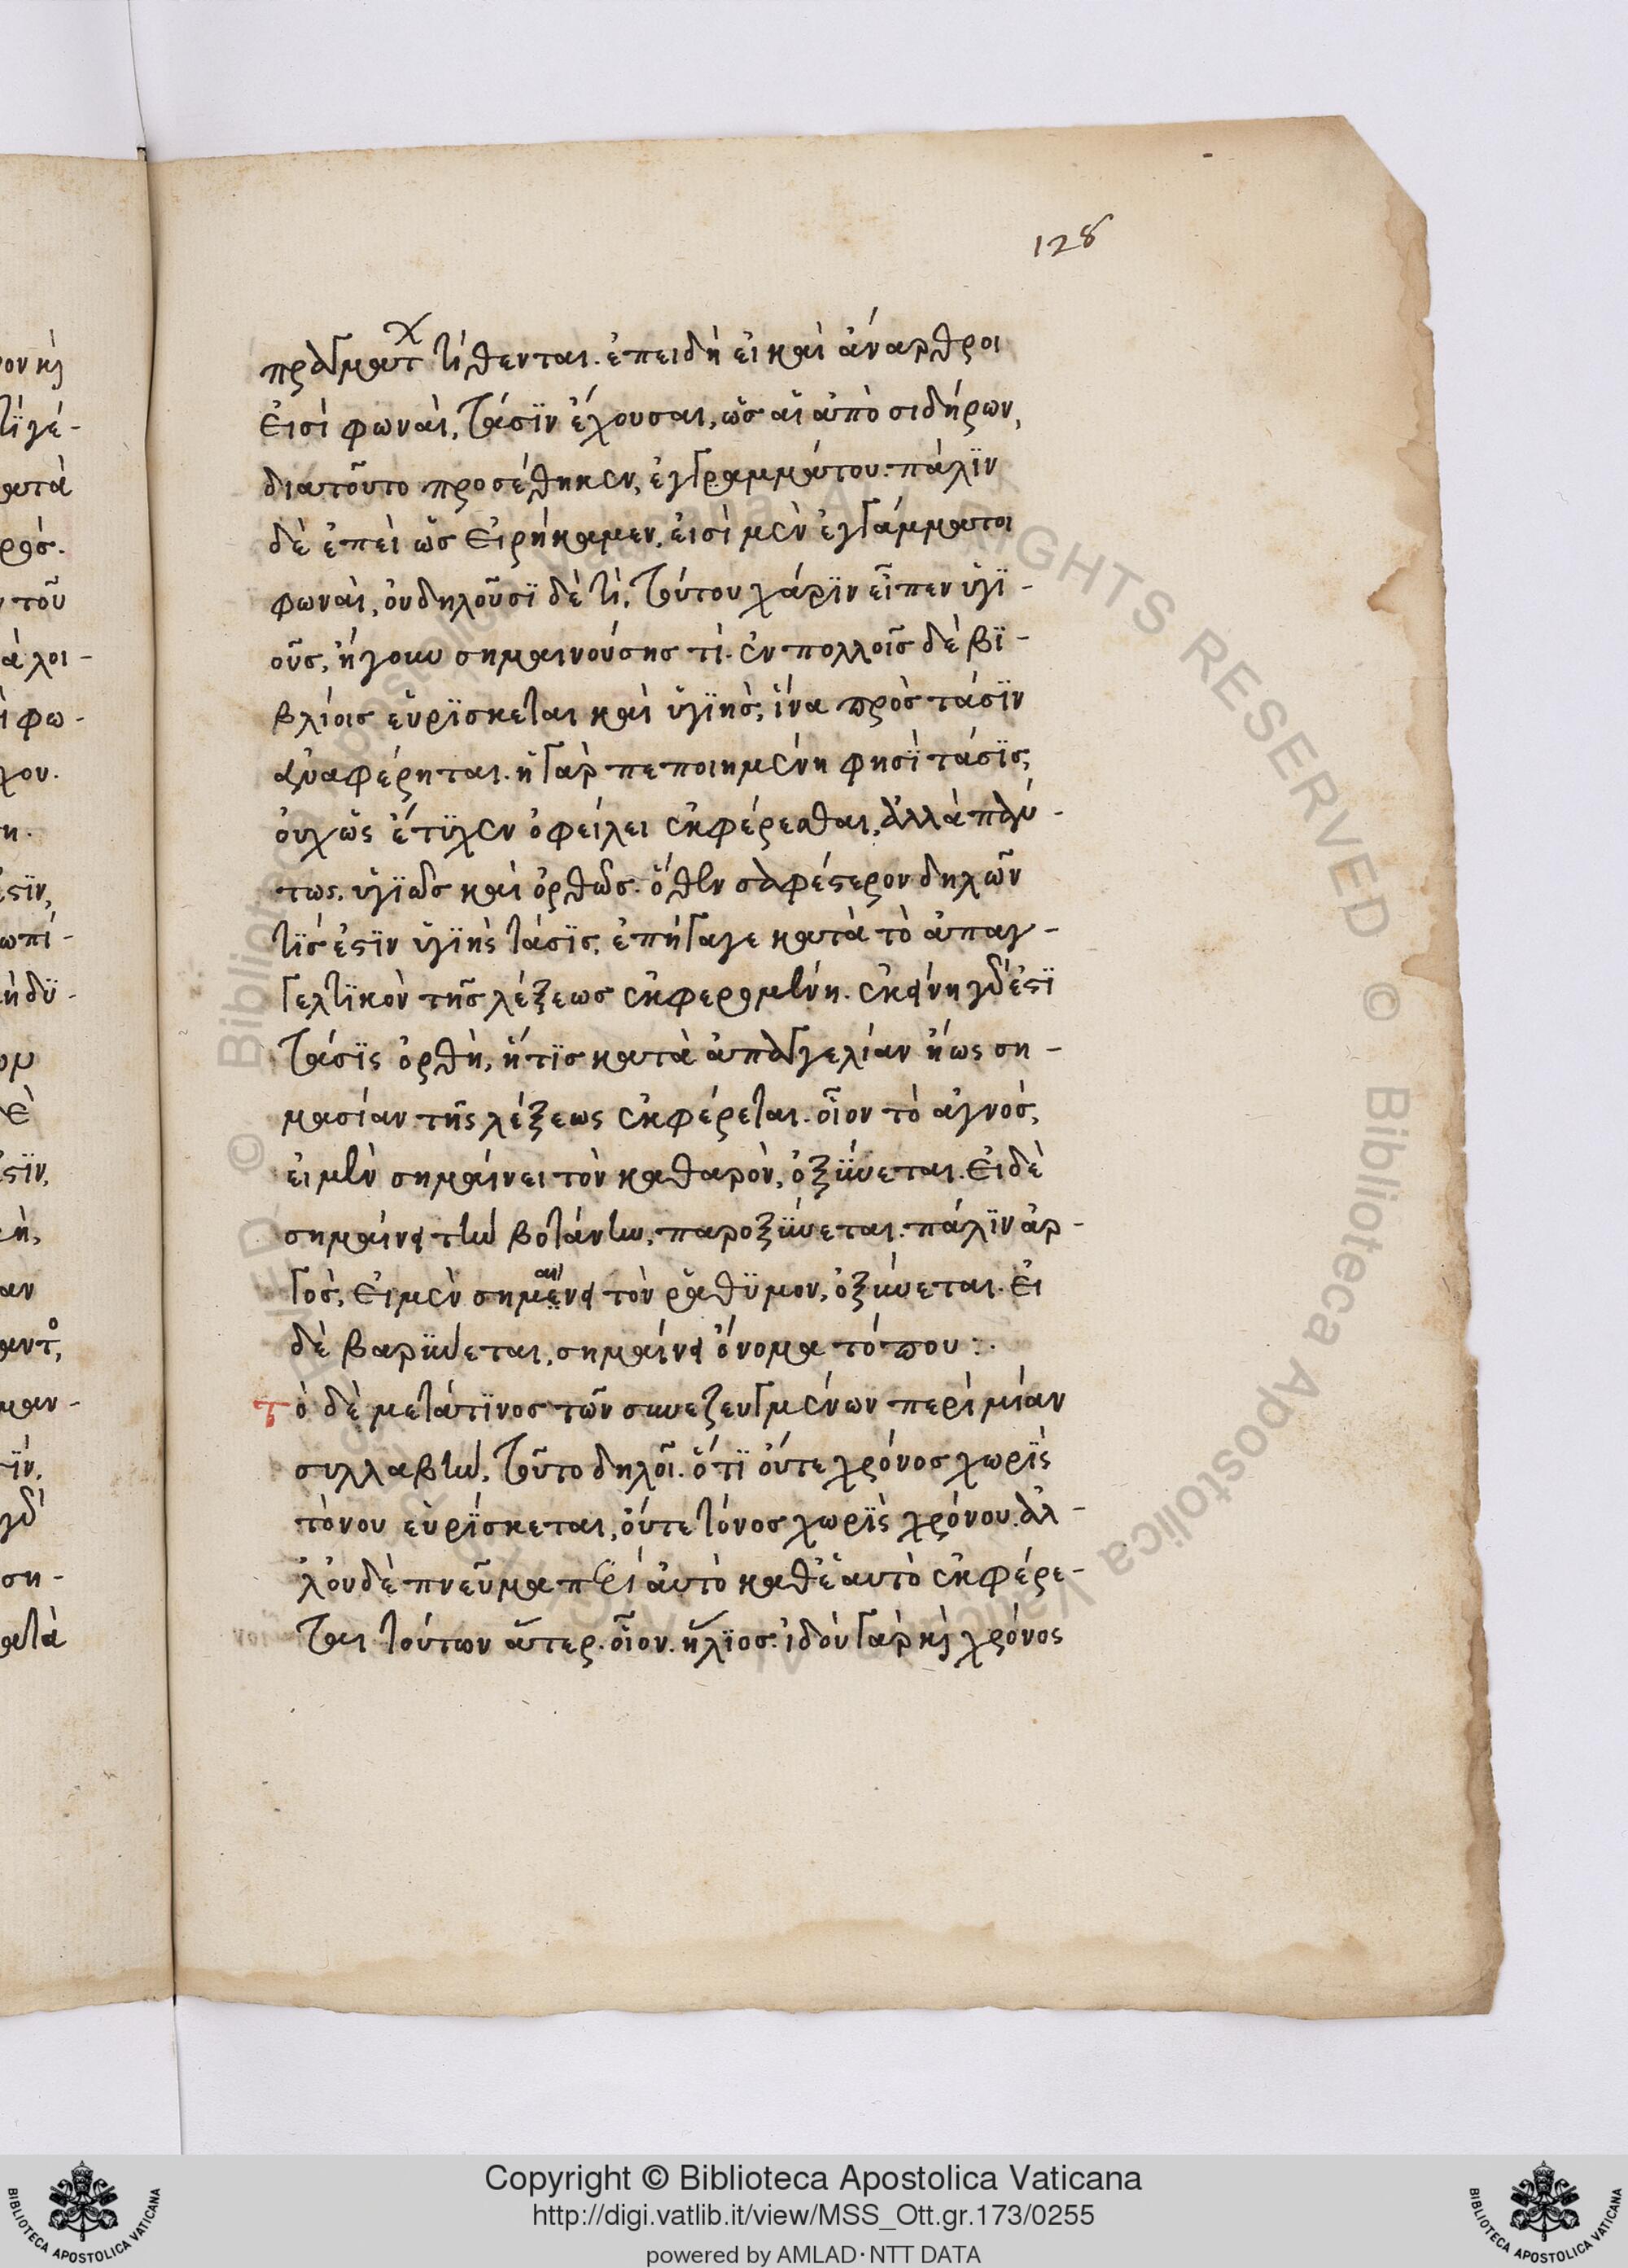 128
πράγματ τίθενται. ἐπειδὴ εἰ καὶ ἄναρθροι
εἰσὶ φωναὶ, τάσϊν ἔχουσαι, ὡς αἱ ἀπὸ σιδήρων,
διατοῦτο προσέθηκεν, ἐγγραμμάτου. πάλϊν
δὲ ἐπεὶ ὡς εἰρήκαμεν, εἰσὶ μὲν ἐγγάμματοι
φωναὶ, οὐδηλοῦσϊ δέ τι, τούτου χάρϊν εἶπεν ὑγϊ-
οῦς, ἤγουν σημαινούσης τί. ἐν πολλοῖς δὲ βϊ-
βλίοις εὑρϊσκεται καὶ ὑγϊὴς, ἵνα πρὸς τάσϊν
ἀναφέρηται. ἡ γὰρ πεποιημένη φησϊ τάσϊς,
οὐχ ὡς ἔτϋχεν ὀφείλει ἐκφέρεσθαι, ἀλλὰ πάν-
τως, ὑγϊῶς καὶ ὀρθῶς. ὅθεν σαφέστερον δηλῶν
τϊς ἐστϊν ὑγϊὴς τάσϊς, ἐπήγαγε κατὰ τὸ ἀπαγ-
γελτϊκὸν τῆς λέξεως ἐκφερομένη. ἐκείνη γάρ ἐστϊ
τάσϊς ὀρθὴ, ἥτϊς κατὰ ἀπαγγελίαν ἤως ση-
μασίαν τῆς λέξεως ἐκφέρεται. οἷον τὸ ἁγνός,
εἰ μὲν σημαίνει τὸν καθαρὸν, ὀξϋνεται. εἰ δὲ
σημαίνει τὴν βοτάνην, παροξϋνεται. πάλϊν ἀρ-
γὸς, εἰ μὲν σημαίνει τὸν ῥάθϋμον, ὀξύνεται. εἰ
δὲ βαρϋνεται, σημαίνει ὄνομα τόπου :.
τὸ δὲ μετάτϊνος τῶν συνεζευγμένων περὶ μίαν
συλλαβὴν, τοῦτο δηλοῖ. ὅτϊ οὔτε χρόνος χωρϊς
τόνου εὑρϊσκεται, οὔτε τόνος χωρϊς χρόνου. ἀλ-
λ' οὐδὲ πνεῦμα περὶ αὐτὸ καθ' ἑαυτὸ ἐκφέρε-
ται τούτων ἄτερ. οἷον. ἥλϊος. ἰδοὺ γὰρ κὶ χρόνος
Copyright © Biblioteca Apostolica Vaticana
http://digi.vatlib.it/view/MSS_Ott.gr.173/0255
powered by AMLAD·NTT DATA